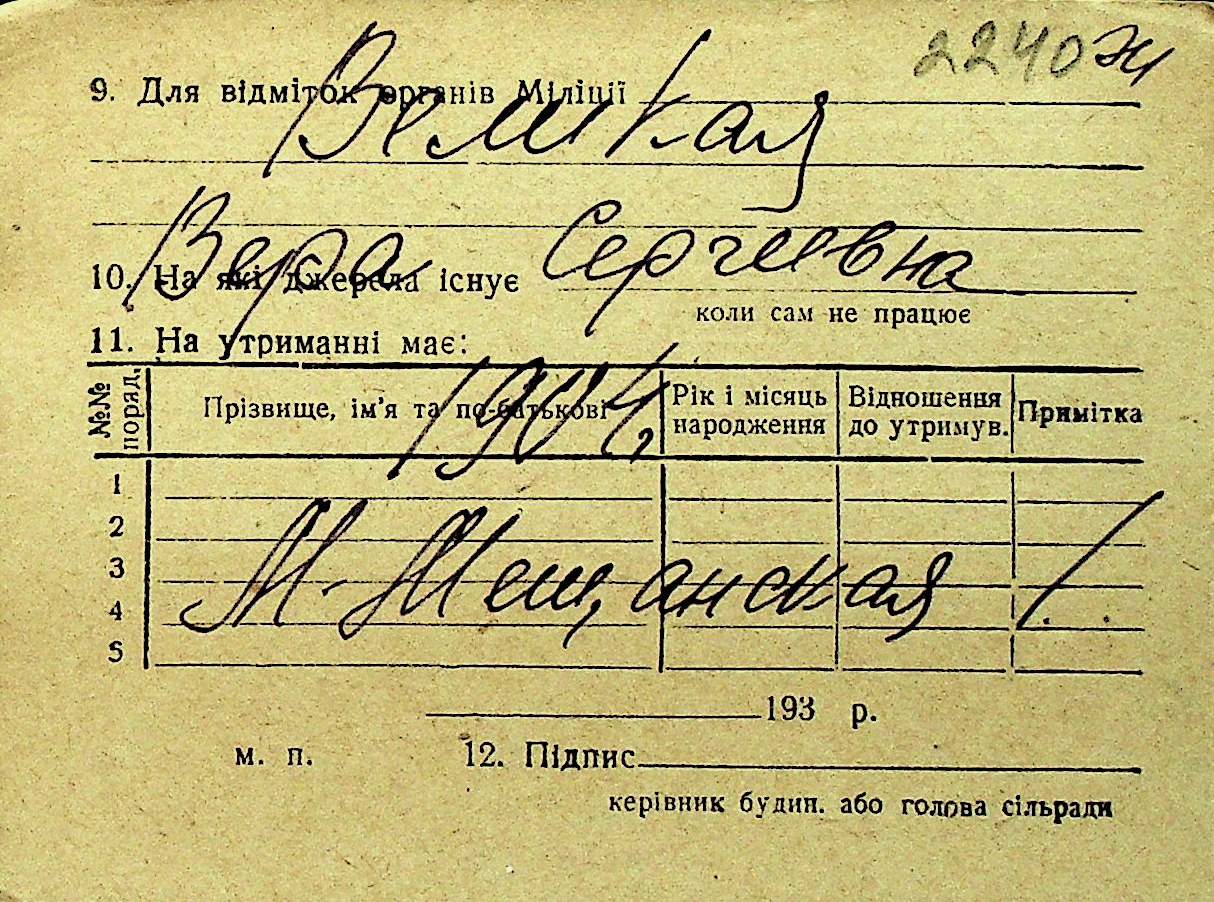 2240 ж
9. Для відміток органів Міліції
Великая
Вера Сергеевна
10. На які джерела існує
коли сам не працює
11. На утриманні має:
1904
№№ поряд. Прізвище, ім'я та по-батькові Рік і місяць народження Відношення до утримув. Примітка
1
2
М-Мещанская 1.
3
4
5
193 р.
м. п. 12. Підпис
керівник будин. або голова сільради